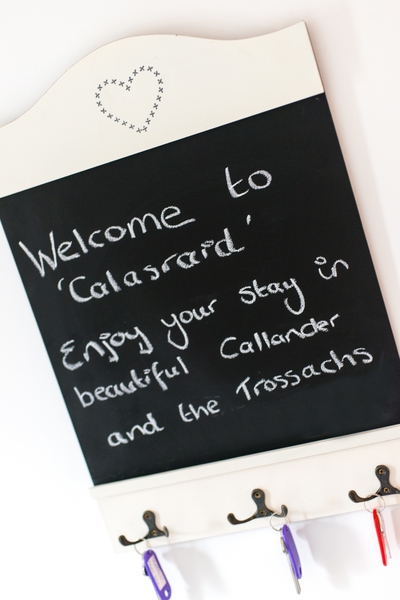 Welcome to
'Calasraid'
Enjoy your stay in
beautiful Callander
and the Trossachs